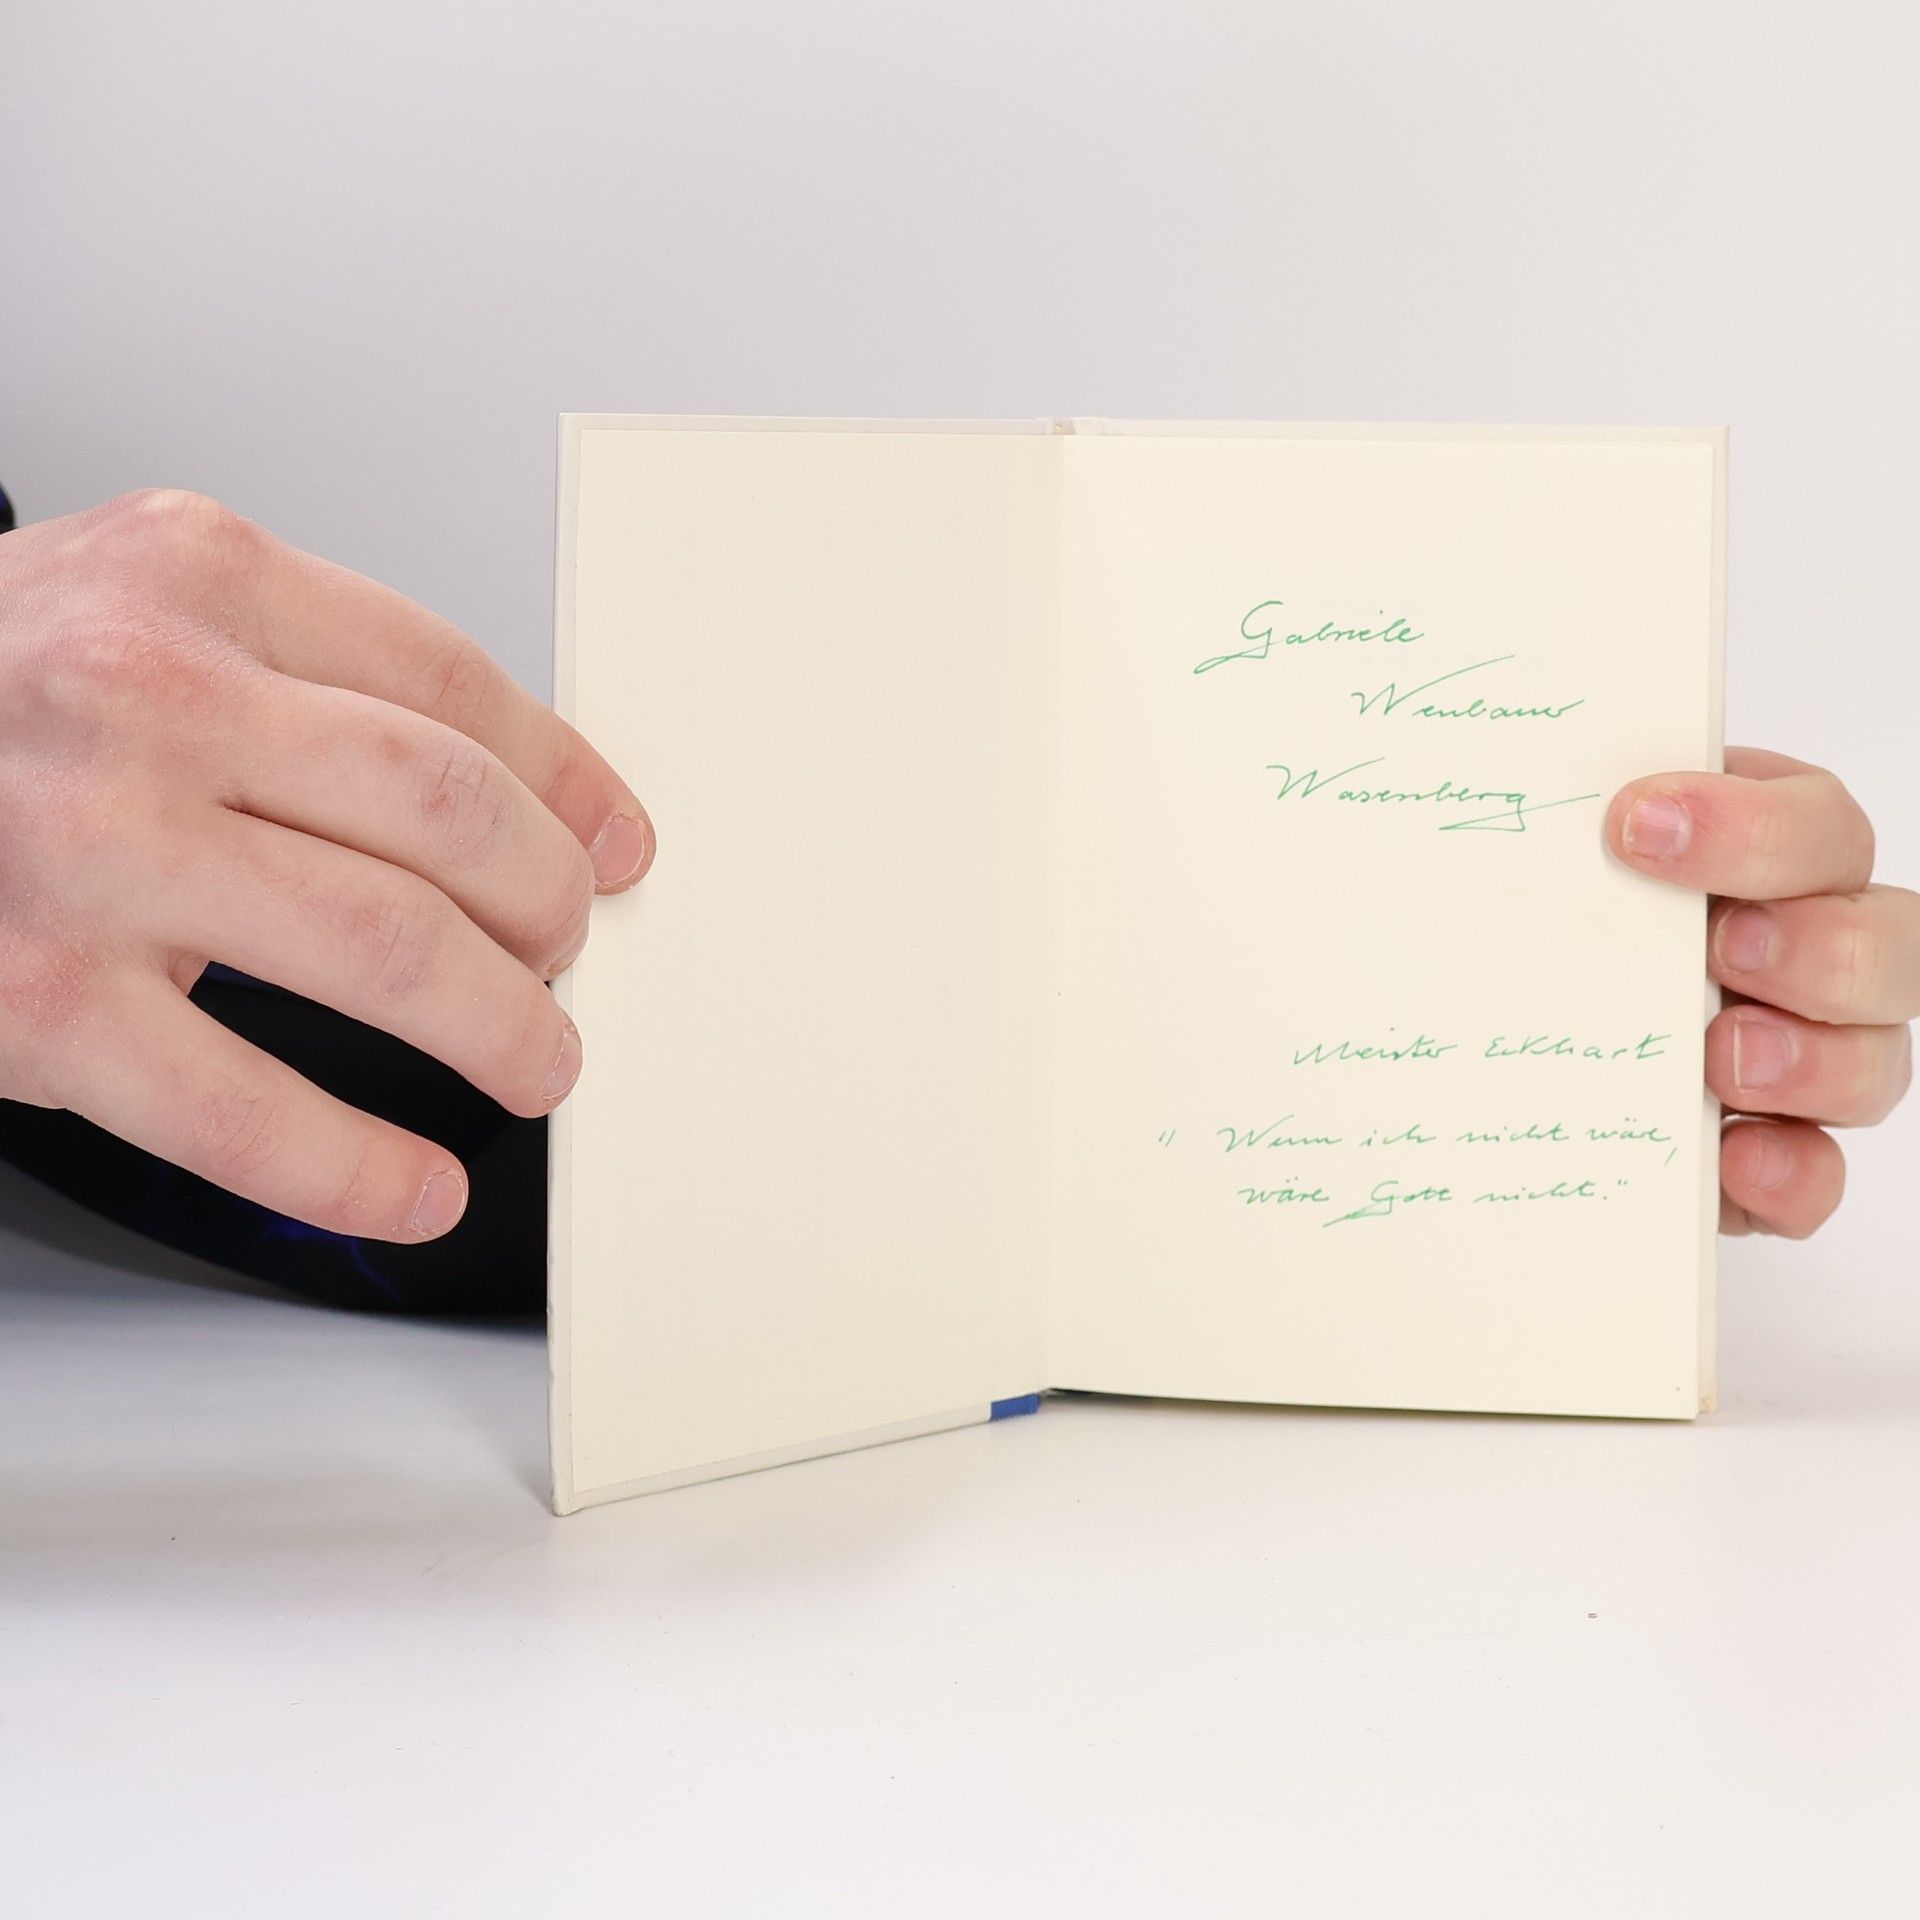 Gabriele
Wasenberg
Meister Eckhart
" Wenn ich nicht wäre,
wäre Gott nicht."